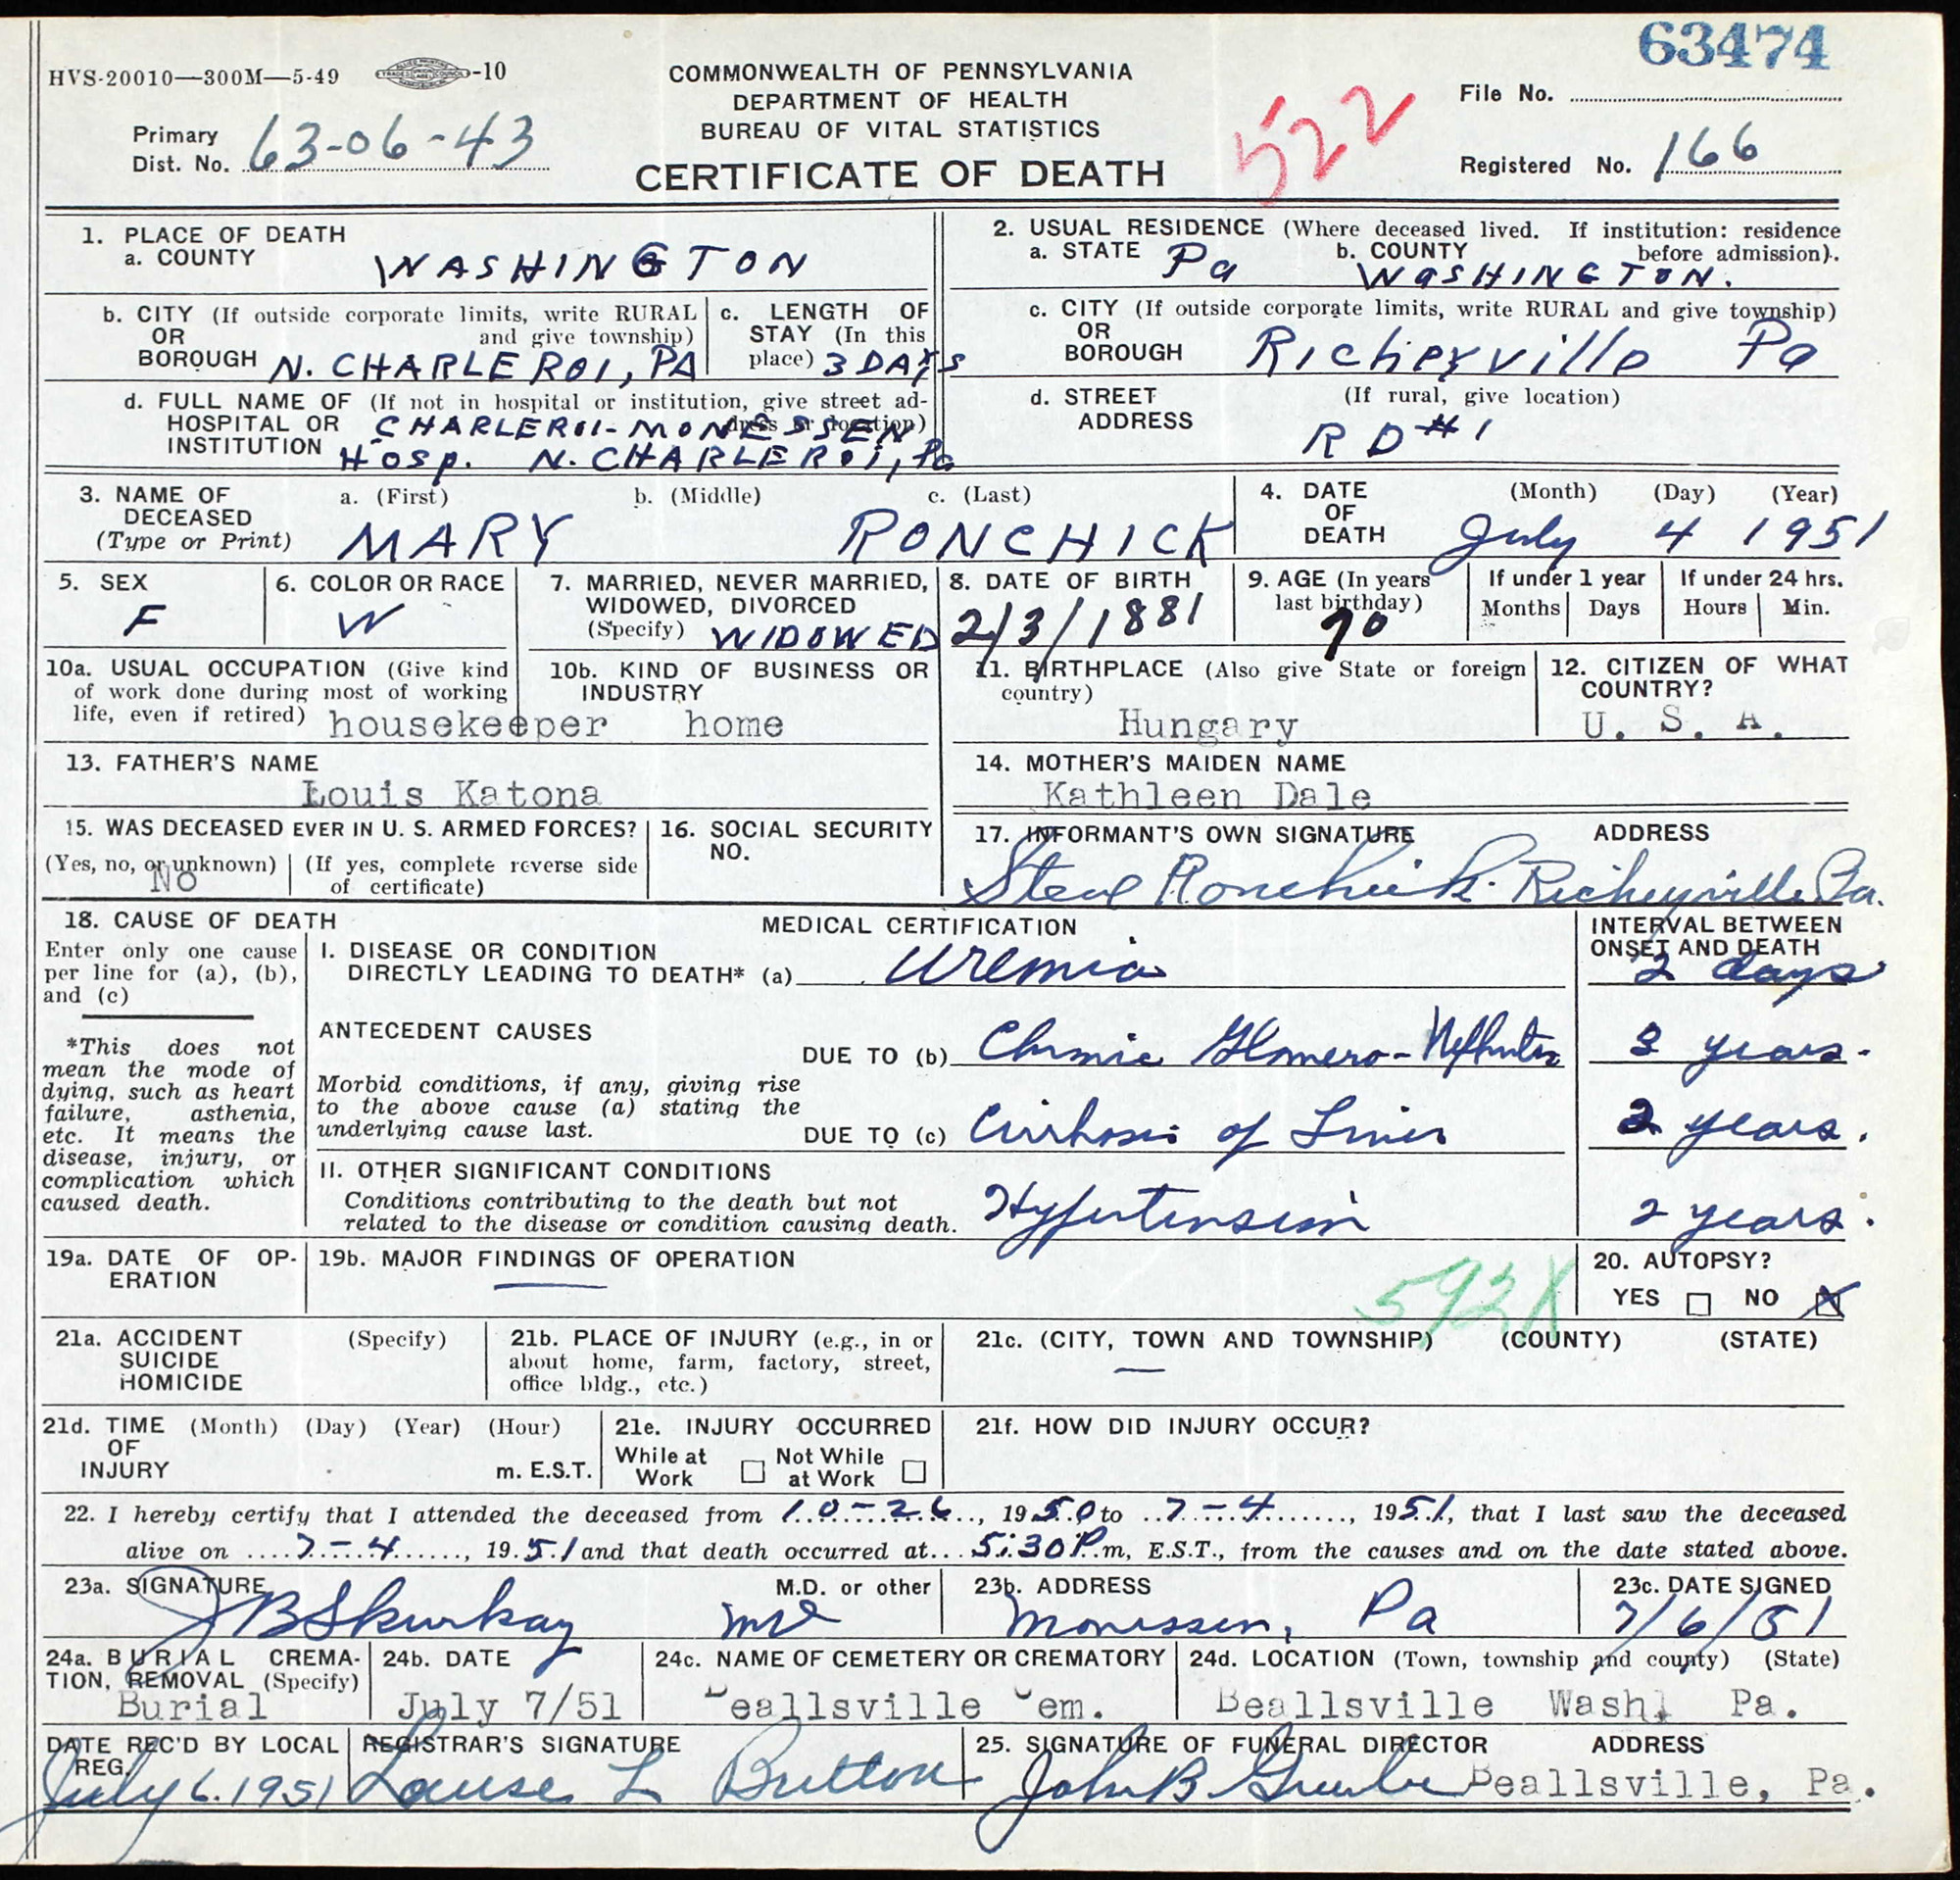 63474
HVS-20010—300M—5-49 -10
COMMONWEALTH OF PENNSYLVANIA
DEPARTMENT OF HEALTH
BUREAU OF VITAL STATISTICS
CERTIFICATE OF DEATH
522
File No.
Primary
Dist. No. 63-06-43
Registered No. 166
1. PLACE OF DEATH
a. COUNTY WASHINGTON
2. USUAL RESIDENCE (Where deceased lived. If institution: residence
before admission).
a. STATE Pa b. COUNTY WASHINGTON.
b. CITY (If outside corporate limits, write RURAL
OR and give township)
BOROUGH N. CHARLEROI, PA
c. LENGTH OF
STAY (In this
place) 3 DAYS
c. CITY (If outside corporate limits, write RURAL and give township)
OR
BOROUGH Richeyville Pa
d. FULL NAME OF (If not in hospital or institution, give street ad-
HOSPITAL OR dress or location)
INSTITUTION
CHARLEROI-MONESSEN
Hosp. N. CHARLEROI, Pa
d. STREET (If rural, give location)
ADDRESS
RD #1
3. NAME OF
DECEASED
(Type or Print)
a. (First) b. (Middle) c. (Last)
MARY RONCHICK
4. DATE
OF
DEATH
(Month) (Day) (Year)
July 4 1951
5. SEX
F
6. COLOR OR RACE
W
7. MARRIED, NEVER MARRIED,
WIDOWED, DIVORCED
(Specify) WIDOWED
8. DATE OF BIRTH
2/3/1881
9. AGE (In years
last birthday)
70
If under 1 year
Months Days
If under 24 hrs.
Hours Min.
10a. USUAL OCCUPATION (Give kind
of work done during most of working
life, even if retired) housekeeper
10b. KIND OF BUSINESS OR
INDUSTRY
home
11. BIRTHPLACE (Also give State or foreign
country)
Hungary
12. CITIZEN OF WHAT
COUNTRY?
U. S. A.
13. FATHER'S NAME
Louis Katona
14. MOTHER'S MAIDEN NAME
Kathleen Dale
15. WAS DECEASED EVER IN U. S. ARMED FORCES?
(Yes, no, or unknown) (If yes, complete reverse side
of certificate)
No
16. SOCIAL SECURITY
NO.
17. INFORMANT'S OWN SIGNATURE ADDRESS
Steve Ronchick. Richeyville Pa.
18. CAUSE OF DEATH
Enter only one cause
per line for (a), (b),
and (c)
*This does not
mean the mode of
dying, such as heart
failure, asthenia,
etc. It means the
disease, injury, or
complication which
caused death.
MEDICAL CERTIFICATION
INTERVAL BETWEEN
ONSET AND DEATH
I. DISEASE OR CONDITION
DIRECTLY LEADING TO DEATH* (a) Uremia 2 days
ANTECEDENT CAUSES
DUE TO (b) Chronic Glomero-Nephritis 3 years.
Morbid conditions, if any, giving rise
to the above cause (a) stating the
underlying cause last.
DUE TO (c) Cirrhosis of Liver years.
II. OTHER SIGNIFICANT CONDITIONS
Conditions contributing to the death but not
related to the disease or condition causing death.
Hypertension 2 years.
19a. DATE OF OP-
ERATION
19b. MAJOR FINDINGS OF OPERATION
592X
20. AUTOPSY?
YES NO X
21a. ACCIDENT (Specify)
SUICIDE
HOMICIDE
21b. PLACE OF INJURY (e.g., in or
about home, farm, factory, street,
office bldg., etc.)
21c. (CITY, TOWN AND TOWNSHIP) (COUNTY) (STATE)
—
21d. TIME (Month) (Day) (Year) (Hour)
OF
INJURY m. E.S.T.
21e. INJURY OCCURRED
While at Not While
Work at Work
21f. HOW DID INJURY OCCUR?
22. I hereby certify that I attended the deceased from 10-26, 1950 to 7-4, 1951, that I last saw the deceased
alive on 7-4, 1951 and that death occurred at 5:30 P.m, E.S.T., from the causes and on the date stated above.
23a. SIGNATURE M.D. or other
JB Skurkay MD
23b. ADDRESS
Monessen, Pa
23c. DATE SIGNED
7/6/51
24a. BURIAL CREMA-
TION, REMOVAL (Specify)
Burial
24b. DATE
July 7/51
24c. NAME OF CEMETERY OR CREMATORY
Beallsville Cem.
24d. LOCATION (Town, township and county) (State)
Beallsville Wash. Pa.
DATE REC'D BY LOCAL
REG.
July 6. 1951
REGISTRAR'S SIGNATURE
Louise L Button
25. SIGNATURE OF FUNERAL DIRECTOR ADDRESS
John B Beallsville, Pa.